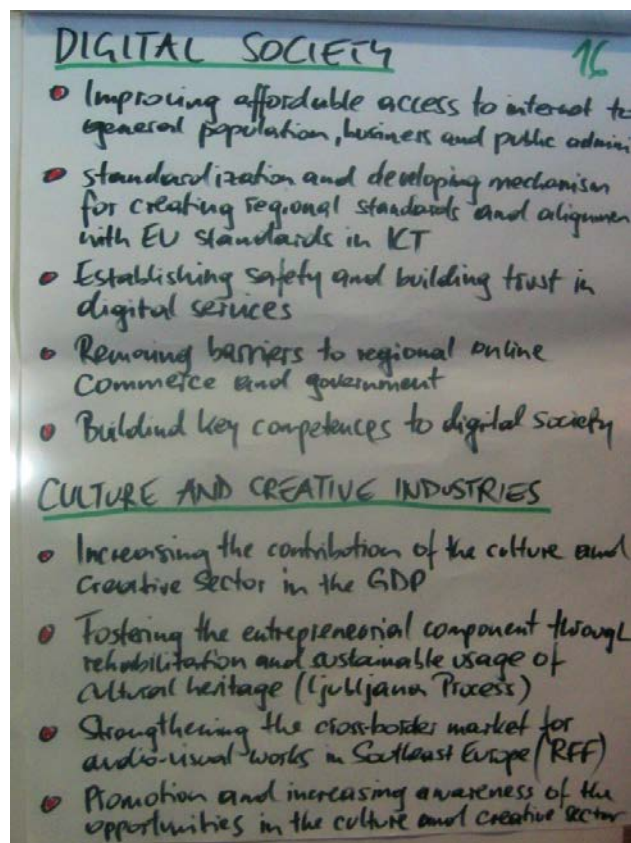 DIGITAL SOCIETY
16
Improving affordable access to internet to
general population, business and public admini
standardization and developing mechanism
for creating regional standards and alignmen
with EU standards in ICT
Establishing safety and building trust in
digital services
Removing barriers to regional online
commerce and government
Buildind key competences to digital society
CULTURE AND CREATIVE INDUSTRIES
Increasing the contribution of the culture and
Creative Sector in the GDP
Fostering the entrepreneorial component through
rehabilitation and sustainable usage of
cultural heritage (Ljubljana Process)
Strengthening the cross-border market for
audio-visual works in Southeast Europe (RFF)
Promotion and increasing awareness of the
opportunities in the culture and creative sector